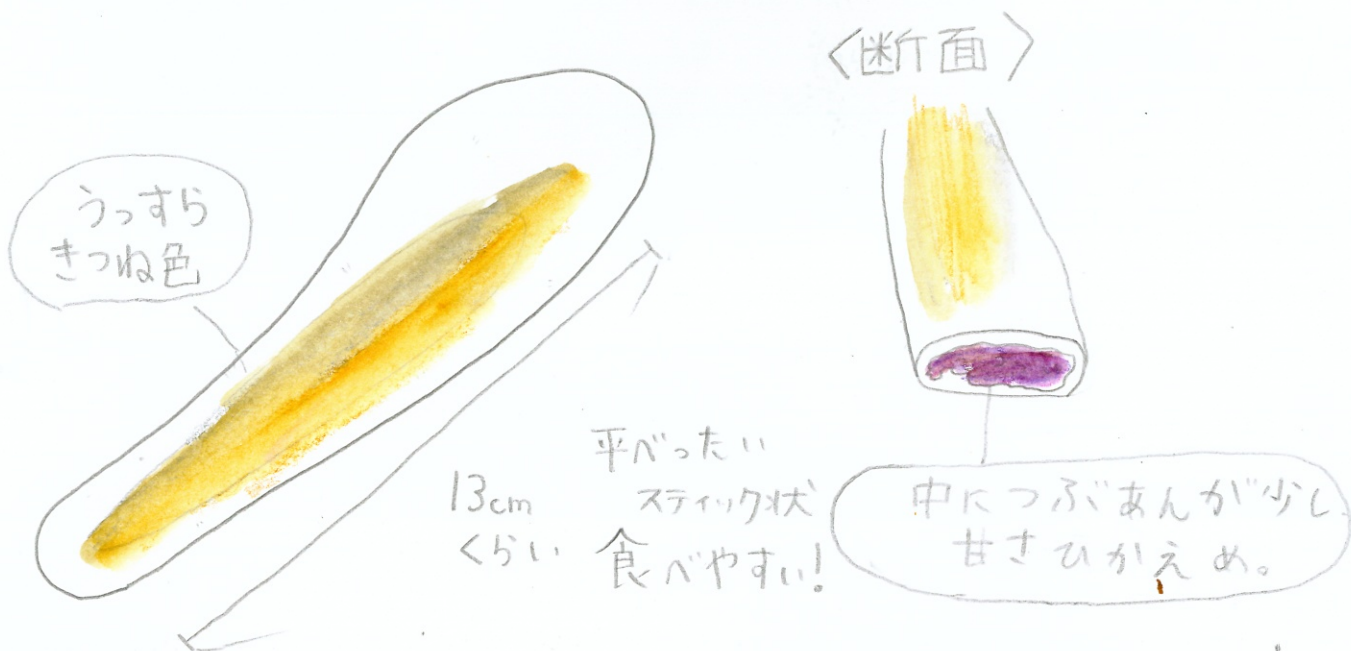 〈断面〉
うっすら
きつね色
13cm
くらい
平べったい
スティック状
食べやすい!
中につぶあんが少し
甘さひかえめ。